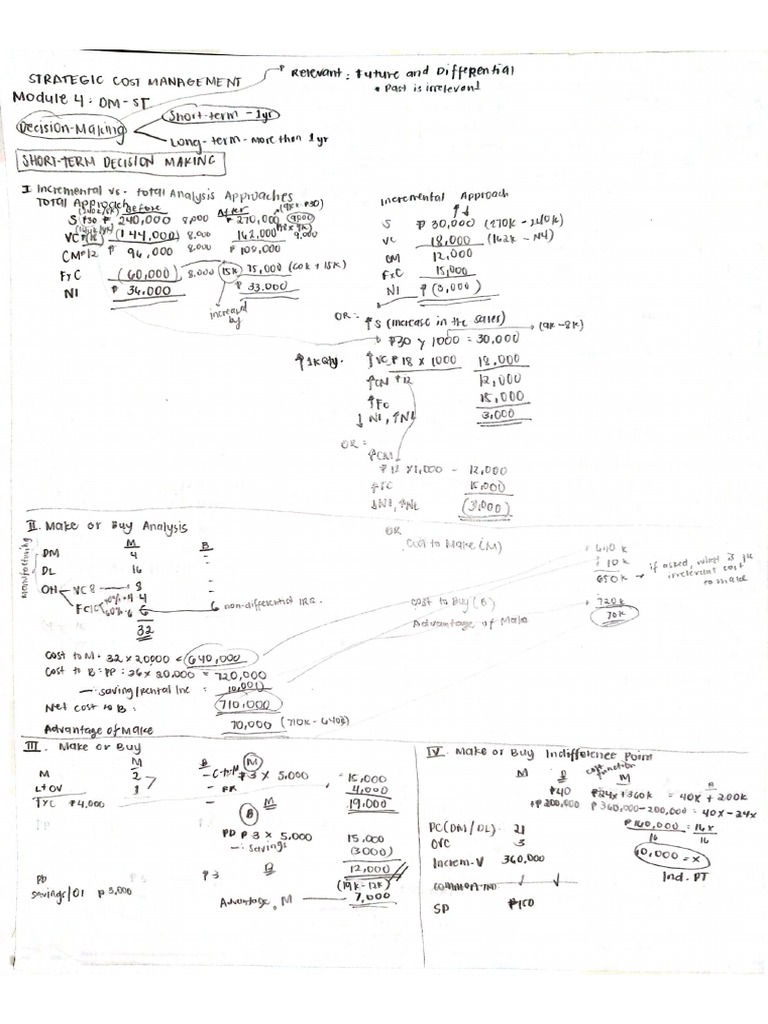 STRATEGIC COST MANAGEMENT
Relevant: Future and Differential
• Past is irrelevant
Module 4: DM-ST
Decision-Making
Short-term - 1yr
Long-term - more than 1yr
SHORT-TERM DECISION MAKING
I Incremental vs. total Analysis Approaches
Total Approach
Before
After
S ₱30 ₱ 240,000 8,000 ₱ 270,000
VC (144,000) 8,000 162,000 9,000
CM ₱12 ₱ 96,000 8,000 ₱ 108,000
FxC (60,000) 8,000 15K 75,000 (60K + 15K)
NI ₱ 34,000 ₱ 33,000
increased by
Incremental Approach
S ₱ 30,000 (270K - 240K)
VC 18,000 (162K - 144)
CM 12,000
FxC 15,000
NI ₱ (3,000)
OR:
↑ S (Increase in the sales)
(9K - 8K)
₱30 y 1000 = 30,000
↑ 1K Qty. ↑ VC ₱ 18 x 1000 18,000
↑ CM ₱12 12,000
↑ FC 15,000
↓ NI, ↑ NL 3,000
OR:
↑ CM
₱ 12 x 1,000 - 12,000
↑ FC 15,000
↓ NI, ↑ NL (3,000)
II. Make or Buy Analysis
M B
Manufacturing
DM 4 -
DL 16 -
OH VC 8 8 -
40% = 4 4 -
60% = 6 6 6 non-differential IRR.
32
Cost to M = 32 x 20,000 = 640,000
Cost to B = PP: 36 x 20,000 = 720,000
- saving/rental Inc : 10,000
Net cost to B : 710,000
Advantage of Make 70,000 (710K - 640K)
OR
Cost to Make (M) 640 K
10 K
650K → if asked, what is the irrelevant cost to make
Cost to Buy (B) 720K
Advantage of Make 70K
III. Make or Buy
M B
M 2 -
L + OV 1 -
TFC ₱4,000 -
M
₱3 x 5,000 15,000
4,000
19,000
B
PD ₱ 3 x 5,000 15,000
- Savings (3000)
12,000
PD ₱3 B
Savings/OI ₱ 3,000
(19K - 12K)
Advantage, M 7,000
IV. Make or Buy Indifference Point
M B
cost function
₱40
+ ₱200,000
M B
₱24x + 360K = 40x + 200K
₱ 360,000 - 200,000 = 40x - 24x
₱160,000 = 16x
16 16
PC (DM/DL) 21
OVC 3
Increm-V 360,000
10,000 = x
Ind. PT
SP ₱100